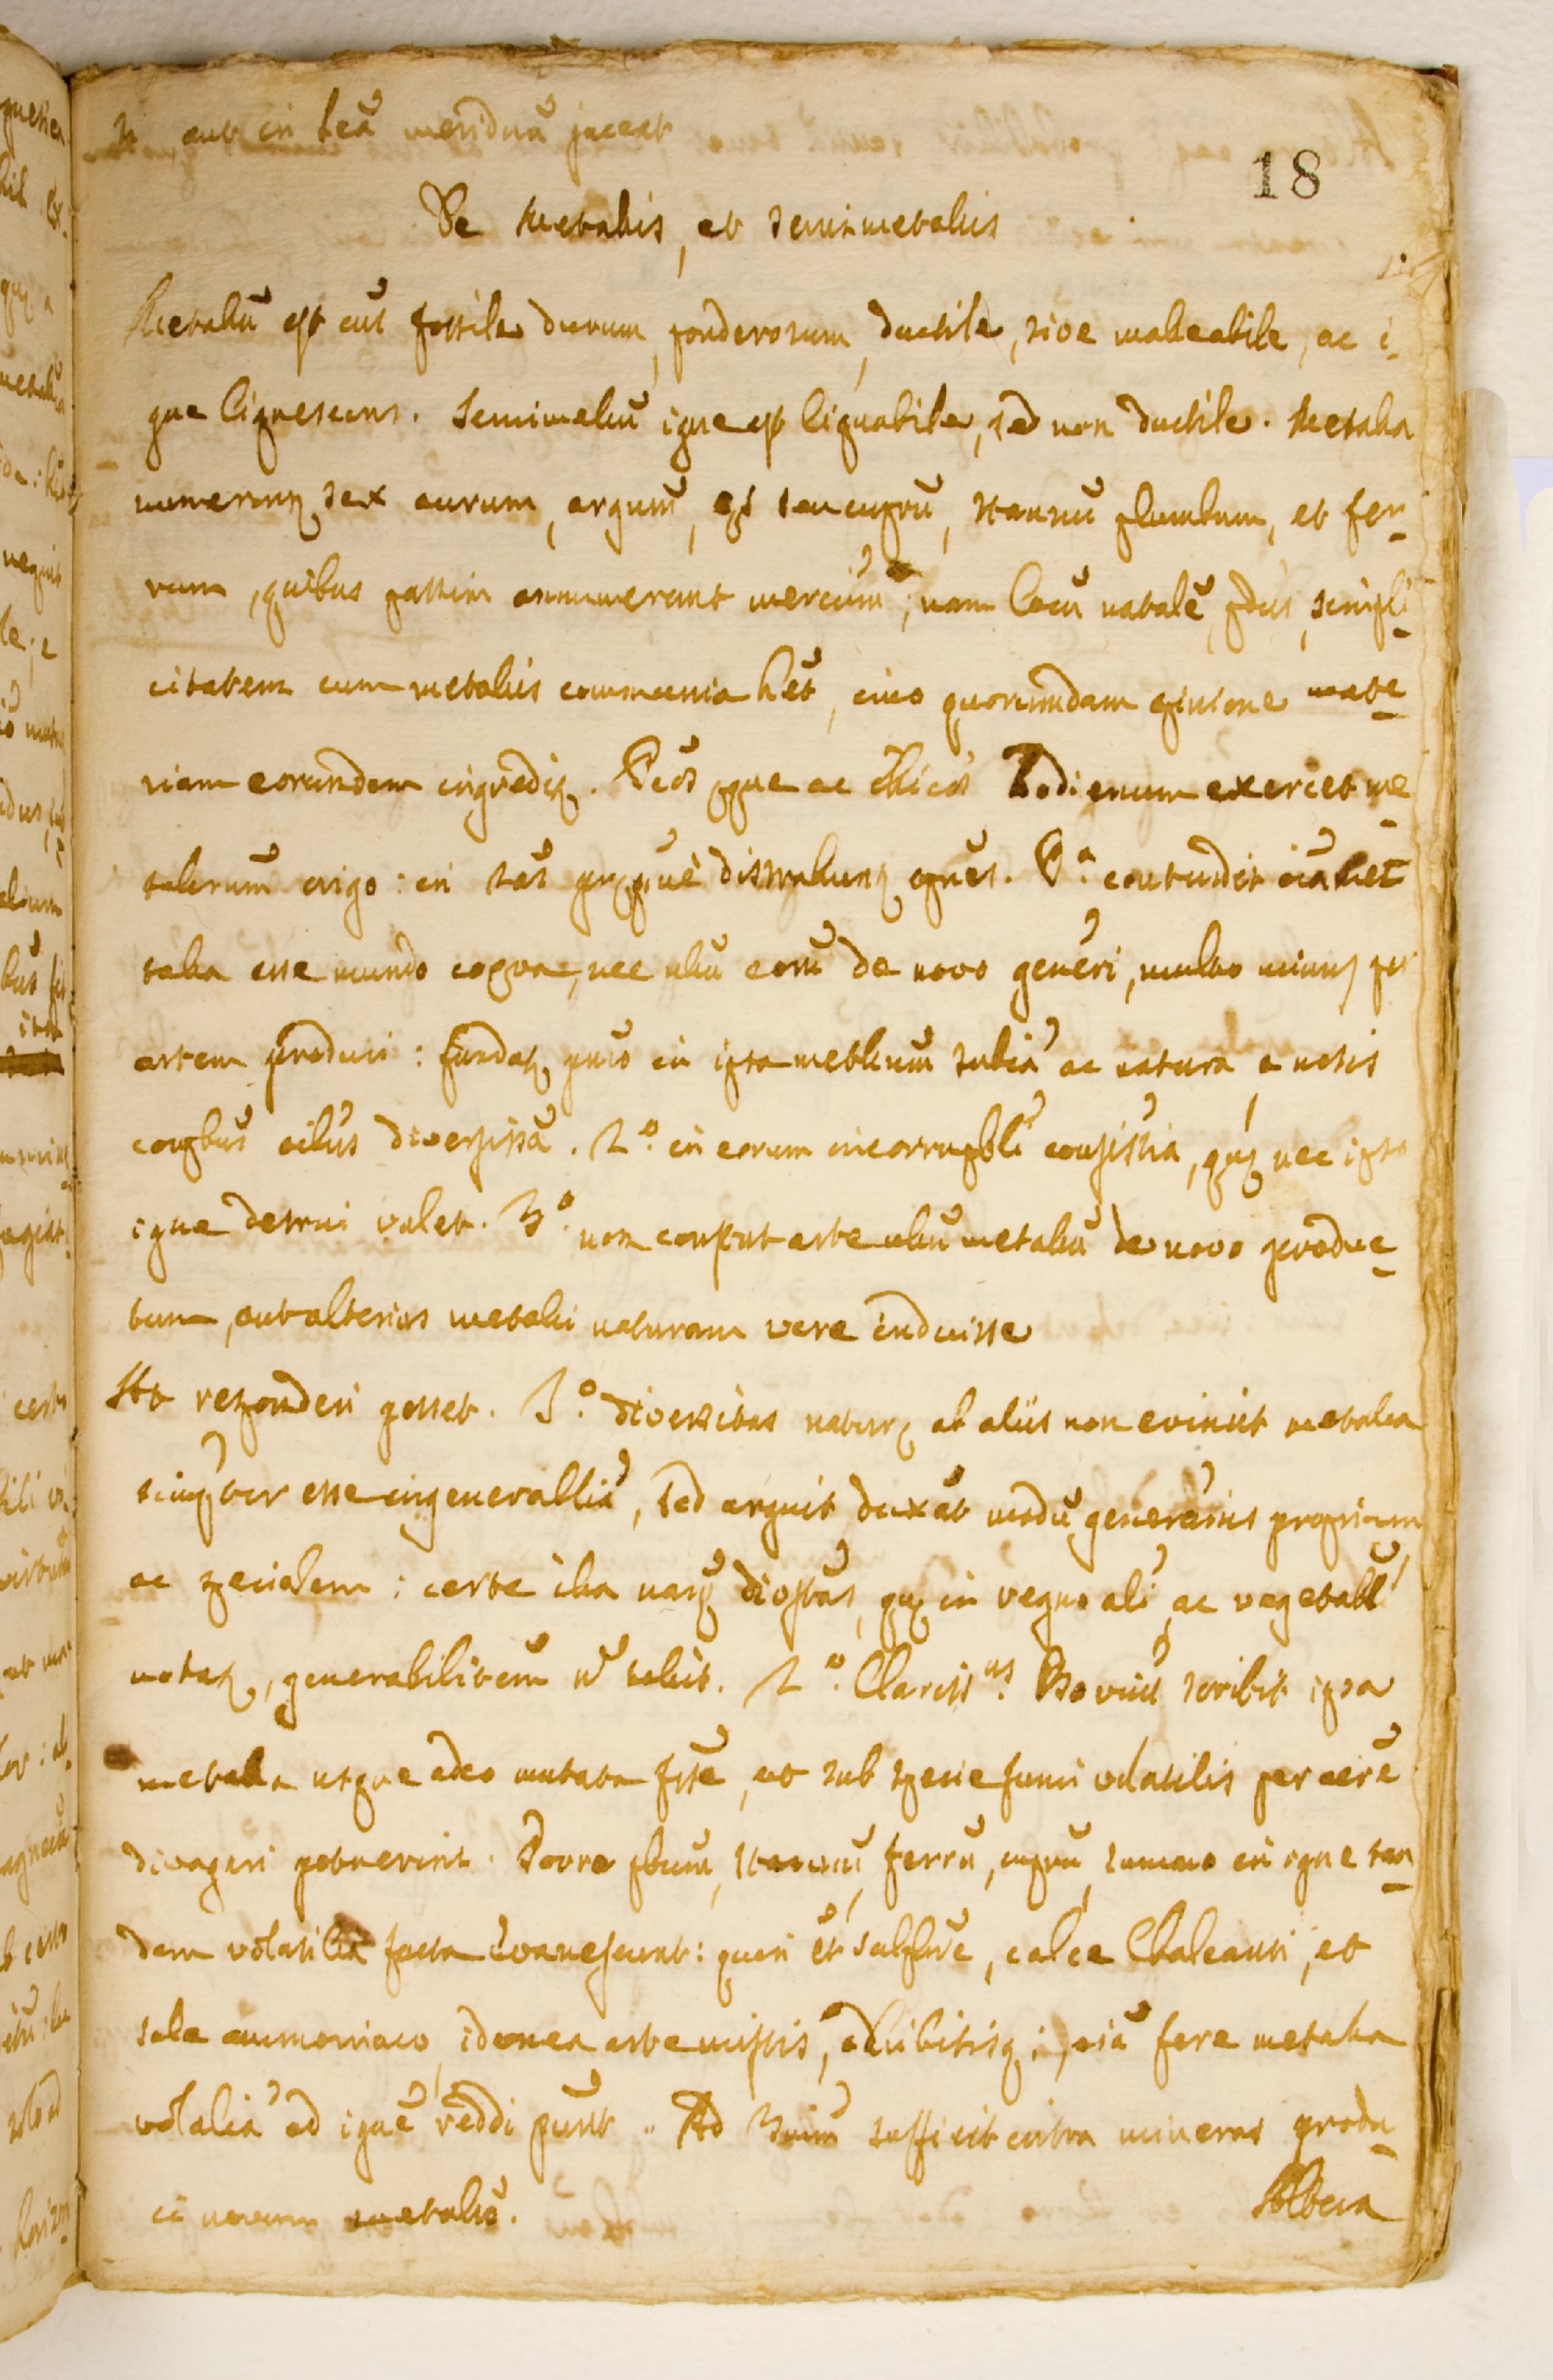 aut in lea meridna jaceat
18
De Metallis, et semimetallis
Metallũ est cus fossile durum, ponderosum, ductile, sive malleabile, ac i-
gne liquescens. Semimelũ igne est liquabile, sed non ductile. Metalla
numerunt sex aurum, argum, æs seu cuprũ, stannũ plumbum, et fer-
rum, quibus passim annumerant mercium; nam locũ natalẽ, pdus, simpli-
citatem cum metallis communia hẽt, imo quorumdam opinione mate-
riam eorundem ingredit. Pcos que ac chicos hodienum exercet me-
tallorum origo: in distrahunt opnes. Pa contendit oia Met
talla esse mundo coæva, nec ullũ eorũ de novo generi, multo minus per
artem produci: fundat primo in ipsa metllium subia ac natura a notis
corpbus oibus diversissa. 2.o in eorum incorrupbli consistia, quæ nec ipso
igne destrui valet. 3.o non constat arte ullũ metallũ de novo produc-
tum, aut alterius metalli naturam vere induisse
At responderi posset. 1.o diversitas naturæ ab aliis non evincit metalla
esse ingenerallia, sed arguit duxat modũ generanis proprium
ac specialem: certe illa naræ divstas, quæ in regno ali ac vegetabl
notat, generabilitem n tollit. 2.o Clariss.us Bovius scribit ipsa
metalla usque adeo mutata fsse, ut sub specie fumi volatilis per aerẽ
divagari potuerint. Porro pbum, stannũ, ferrũ, cuprũ, summo in igne tan-
dem volatilia facta evanescunt: quin et sulphure, calce Chalcanti, et
sale ammoniaco idonea arte mistis, adhibitisq; oia fere metalla
volalia ad ignẽ reddi punt. Ad 3.um sufficit extra mineras produ-
ci novum metallũ.
Altera